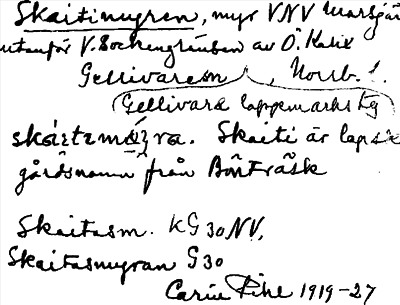 Skaitimyren, myr VNV Marsjär
utanför V. Sockengränsen av Ö. Kalix
Gellivaresn, Norrb. l.
Gellivare lappmarks kg
Skaiti är lapsk
gårdsnamn från Börtråsk
Skaitasm. KG 30 NV,
Skaitasmyran G30
Carin Pihl 1919-27